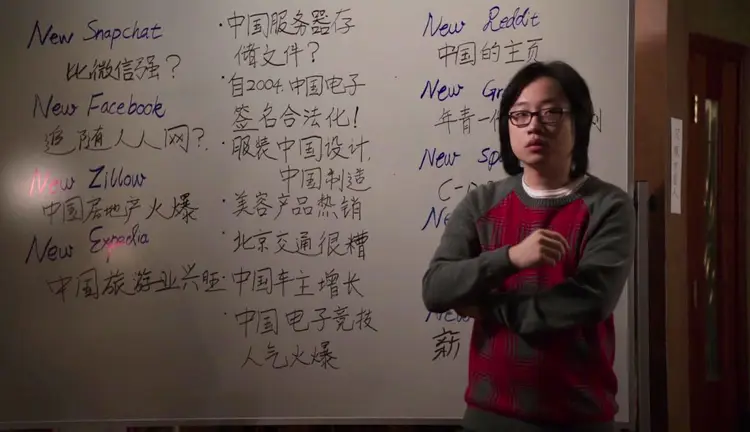 New Snapchat
比微信强？
New Facebook
追随人人网？
New Zillow
中国房地产火爆
New Expedia
中国旅游业兴旺
·中国服务器存
储文件？
·自2004.中国电子
签名合法化！
·服装中国设计,
中国制造
·美容产品热销
·北京交通很糟
·中国车主增长
·中国电子竞技
人气火爆
New Reddit
中国的主页
New
年青一
New
C-
新